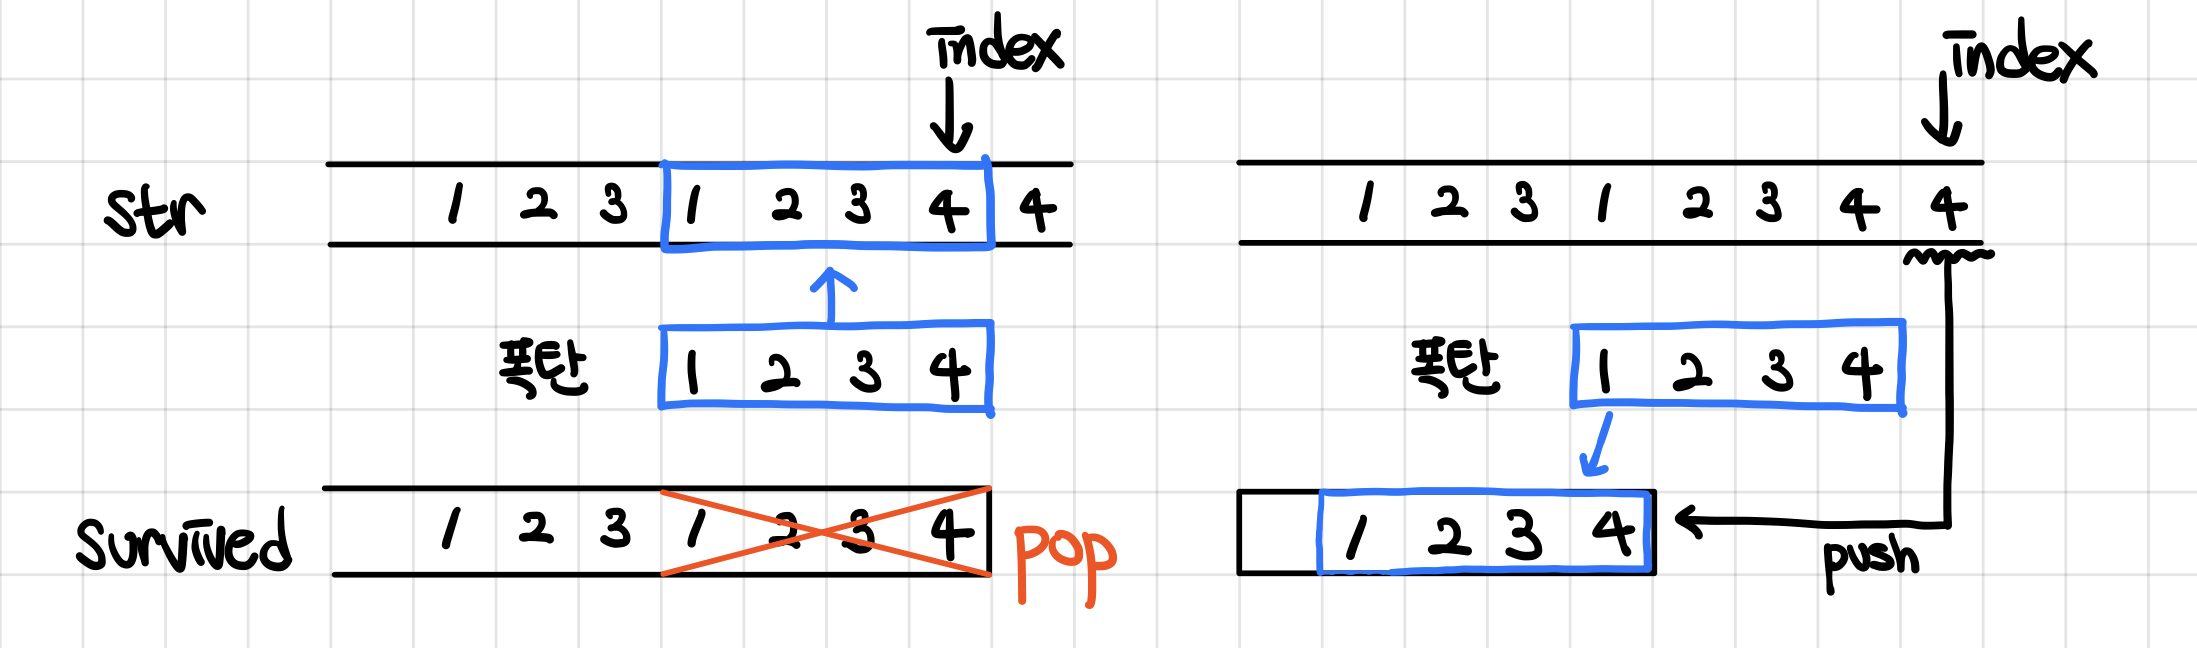 index
str 1 2 3 1 2 3 4 4
폭탄 1 2 3 4
survived 1 2 3 1 2 3 4 pop
index
1 2 3 1 2 3 4 4
폭탄 1 2 3 4
1 2 3 4 push